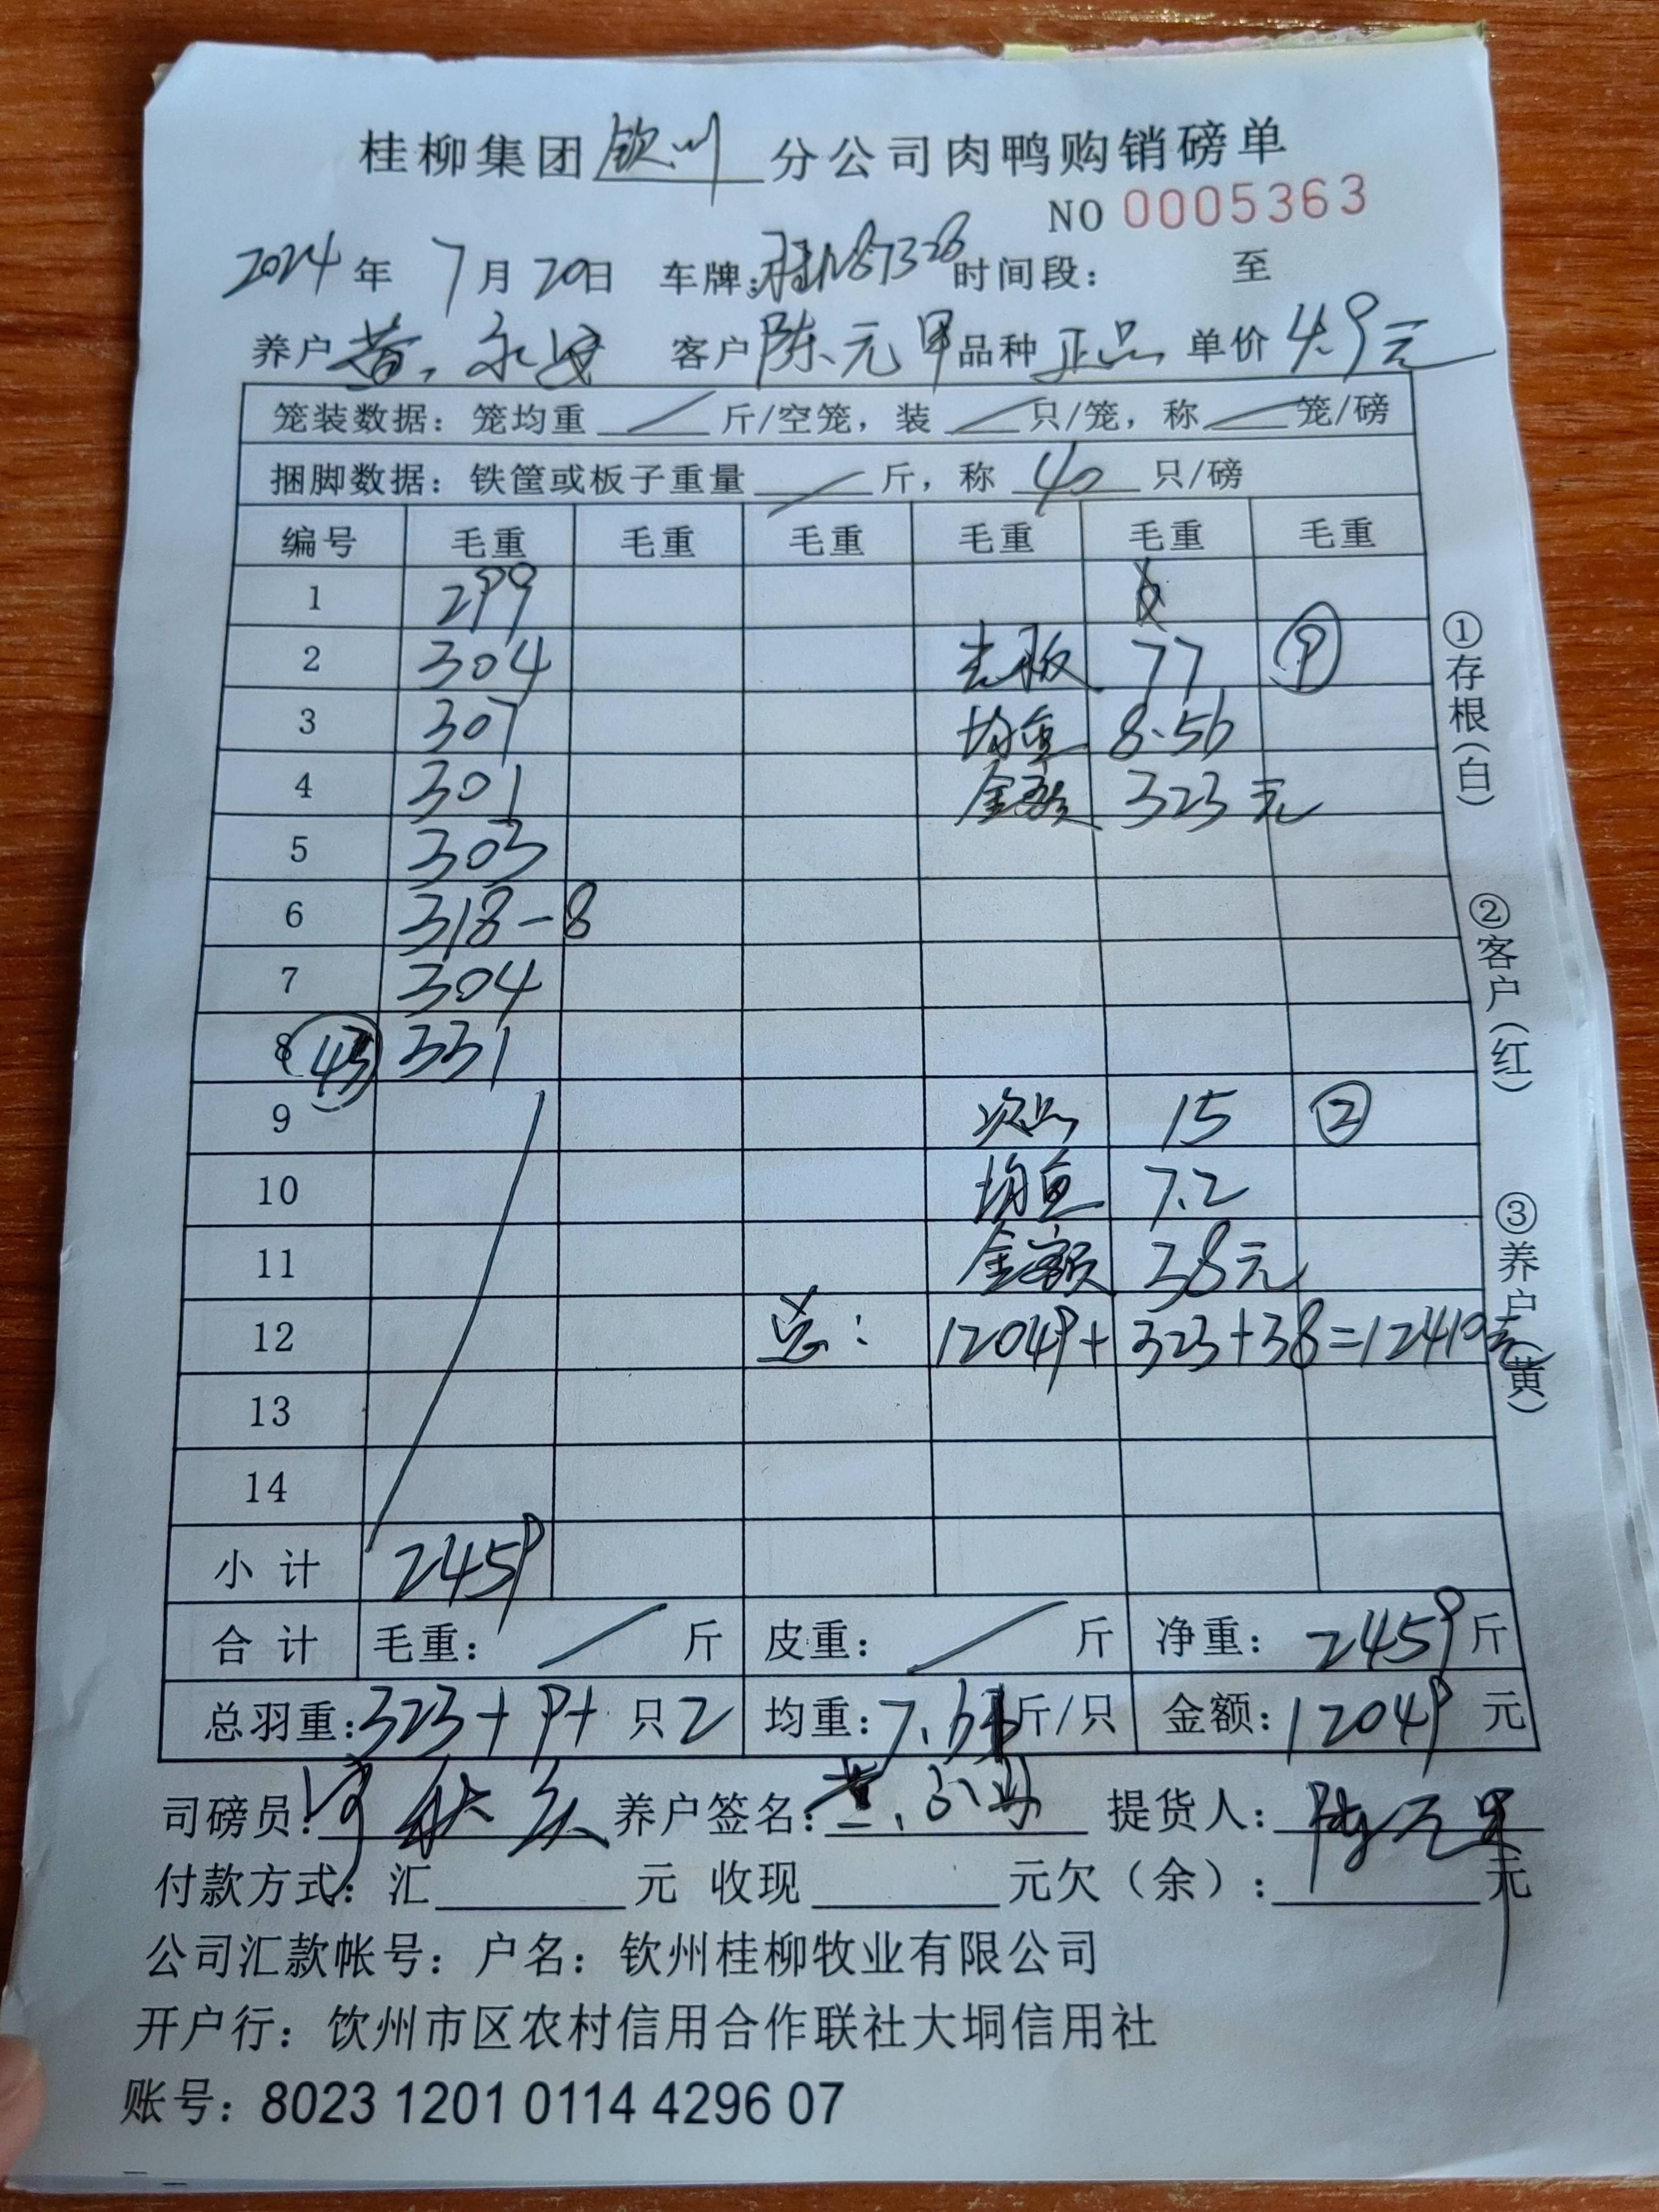 桂柳集团 钦州 分公司肉鸭购销磅单
NO 0005363
2024 年 7 月 20 日 车牌: 桂N87328 时间段: 至
养户 黄 永 客户 陈元甲 品种 正品 单价 4.9元
笼装数据: 笼均重 / 斤/空笼, 装 / 只/笼, 称 / 笼/磅
捆脚数据: 铁筐或板子重量 / 斤, 称 40 只/磅
编号 毛重 毛重 毛重 毛重 毛重 毛重
1 299
2 304 老板 77 ⑨
3 307 均重 8.56
4 301 金额 323元
5 303
6 318-8
7 304
8 (43) 331
9 次品 15 ②
10 均重 7.2
11 金额 38元
12 总: 12049+323+38=12410元
13
14
小计 2459
合计 毛重: / 斤 皮重: / 斤 净重: 2459 斤
总羽重: 323+9+ 只 2 均重: 7.61 斤/只 金额: 12049 元
司磅员: 养户签名: 黄 提货人: 陈元甲
付款方式: 汇 元 收现 元欠(余): 元
公司汇款帐号: 户名: 钦州桂柳牧业有限公司
开户行: 饮州市区农村信用合作联社大垌信用社
账号: 8023 1201 0114 4296 07
①存根(白)
②客户(红)
③养户(黄)